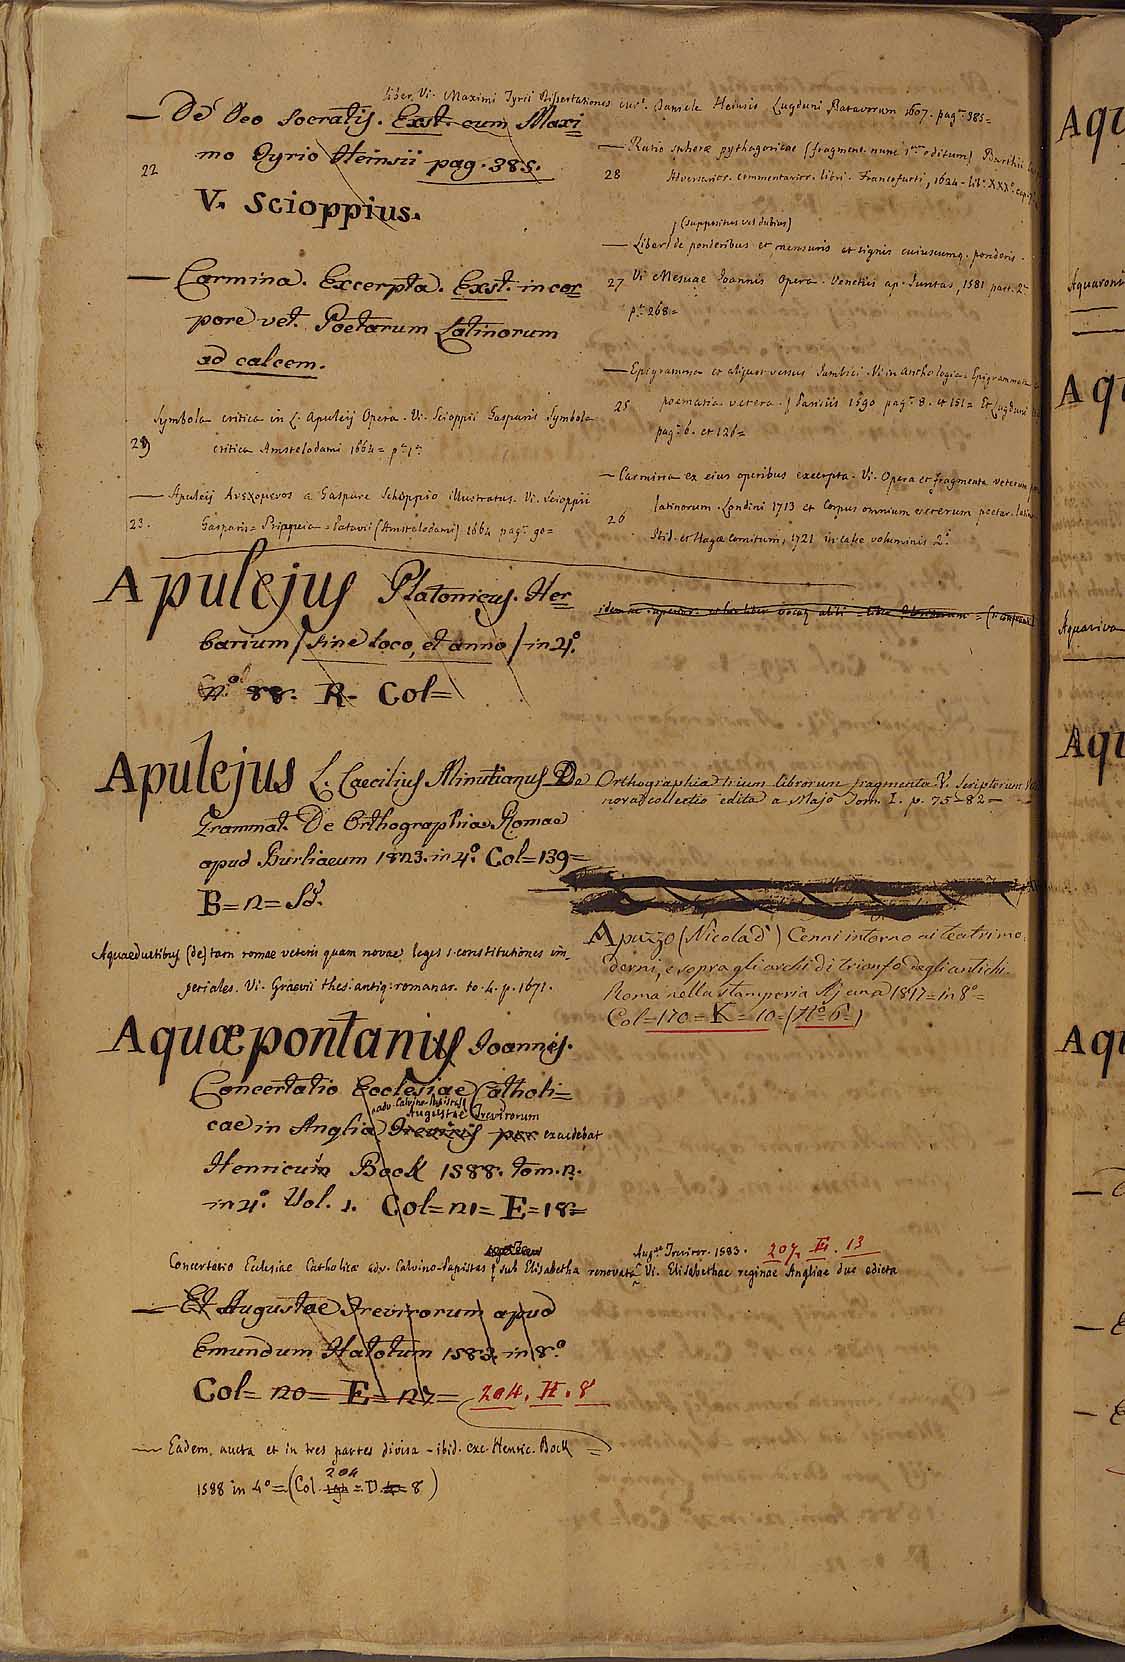 Liber. Vi. Maximi Tyrii Dissertationes cur. Daniele Heinsio Lugduni Batavorum 1607. pag. 385=
— De Deo Socratis. Exst. cum Maxi
mo Tyrio Heinsii pag. 385.
22
V. Scioppius.
— Carmina. Excerpta. Exst. in cor
pore vet. Poetarum Latinorum
ad calcem.
Symbola critica in L. Apuleij Opera. Vi. Scioppii Gasparis Symbola
29
critica Amstelodami 1664=
— Apuleij Ανεχομενος a Gaspare Schoppio illustratus. Vi. Scioppii
23.
Gasparis= Priapeia= Patavii (Amstelodami) 1664 pag. 90=
Apulejus Platonicus. Her
barium / sine loco, et anno / in 4.º
88. R. Col=
Apulejus L. Caecilius Minutianus De
Grammat. De Orthographia. Romae
apud Burliaeum 1823. in 4.º Col=139=
B=12=
Aquaeductibus (de) tam romae veteris quam novae leges s. constitutiones im-
periales. Vi. Graevii thes. antiq. romanar. to. 4. p. 1671.
Aquæpontanus Joannes.
Concertatio Ecclesiae Catholi=
adv. Calvino-Papistas
Augustae Trevirorum
cae in Anglia Treviris per excudebat
Henricum Bock 1588. tom.
in 4.º Vol. 1. Col=121=E=18=
Concertatio Ecclesiae Catholicae adv. Calvino-Papistas sub Elisabetha renovata Vi. Elisabethae reginae Angliae duo edicta
Aug.ae Treviror. 1583. 207. E. 13
— Et Augustae Trevirorum apud
Emundum Hatotum 1583. in 8.º
Col= 120= E= 127= 204. H. 8
— Eadem, aucta et in tres partes divisa - ibid. exc. Henric. Bock
204
1588 in 4º=(Col = D = 8)
— Ratio spherae pythagoricae (fragmen. nunc 1.um editum) Barthii
28
Adversarior. commentarior. libri. Francofurti, 1624 - lib. XXX. cap.
(suppositus vel dubius)
— Liber de ponderibus et mensuris et signis cuiuscumq. ponderis.
27
Vi Mesuae Joannis Opera. Venetiis ap. Juntas, 1581 part. 2.
p. 268=
— Epigramma et aliquot versus Iambici. Vi in anthologia. Epigrammata
25
poematia vetera. Parisiis 1590 pag. 8. et 151= Et Lugduni
pag. 6. et 126=
— Carmina ex eius operibus excerpta. Vi. Opera et fragmenta veterum
26
latinorum. Londini 1713 et Corpus omnium veterum poetar. latin
Ibid. et Hagae comitum, 1721 in calce voluminis 2.
Orthographia trium librorum fragmenta V. Scriptorum
nova collectio edita a Majo Tom. I. p. 75-82-
Apuzzo (Nicola d') Cenni intorno ai teatri mo
derni, e sopra gli archi di trionfo degli antichi.
Roma nella stamperia Ajana 1817= in 8º=
Col=170=K=10=(Nº 6=)
Aqu
Aquaroni
Aqu
Aquariva
Aqu
Aqu